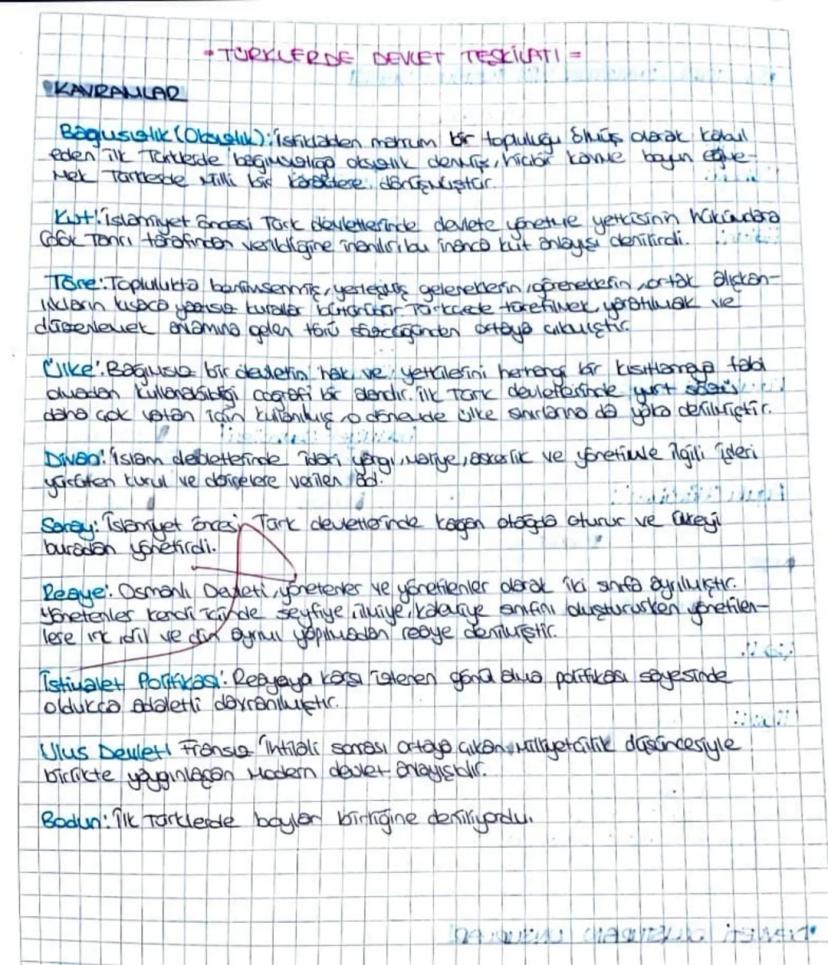 - TÜRKLERDE DEVLET TEŞKİLATI =
KAVRAMLAR
Bağımsızlık (Oksızlık): İstiklalden mahrum bir topluluğu ölmüş olarak kabul
eden ilk Türklerde bağımsızlığa oksızlık denmiş, hiçbir kavme boyun eğme-
mek Türklerde milli bir karaktere dönüşmüştür.
Kut: İslamiyet öncesi Türk devletlerinde devlete yönetme yetkisinin hükümdara
Gök Tanrı tarafından verildiğine inanılır bu inanca kut anlayışı denilirdi.
Töre: Toplulukta benimsenmiş, yerleşmiş geleneklerin, göreneklerin, ortak alışkan-
lıkların kısaca yazısız kurallar bütünüdür Türkçede türetilmek, yaratılmak ve
düzenlemek anlamına gelen törü sözcüğünden ortaya çıkmıştır.
Ülke: Bağımsız bir devletin hak ve yetkilerini herhangi bir kısıtlamaya tabi
olmadan kullanabildiği coğrafi bir alandır. İlk Türk devletlerinde yurt sözü
daha çok vatan için kullanılmış, o dönemde ülke sınırlarına da yaka denilmiştir.
Divan: İslam devletlerinde idari, yargı, maliye, askerlik ve yönetimle ilgili işleri
yürüten kurul ve dairelere verilen ad.
Saray: İslamiyet öncesi Türk devletlerinde kagan otağda oturur ve ülkeyi
buradan yönetirdi.
Reaya: Osmanlı Devleti, yönetenler ve yönetilenler olarak iki sınıfa ayrılmıştır.
Yönetenler kendi içinde seyfiye, ilmiye, kalemiye sınıfını oluştururken yönetilen-
lere ırk, dil ve din ayrımı yapılmadan reaya denilmiştir.
İstimalet Politikası: Reayaya karşı izlenen gönül alma politikası sayesinde
oldukca adaletli davranılmıştır.
Ulus Devleti Fransız İhtilali sonrası ortaya çıkan milliyetcilik düşüncesiyle
birlikte yaygınlaşan modern devlet anlayışıdır.
Bodun: İlk Türklerde boylar birliğine deniliyordu.